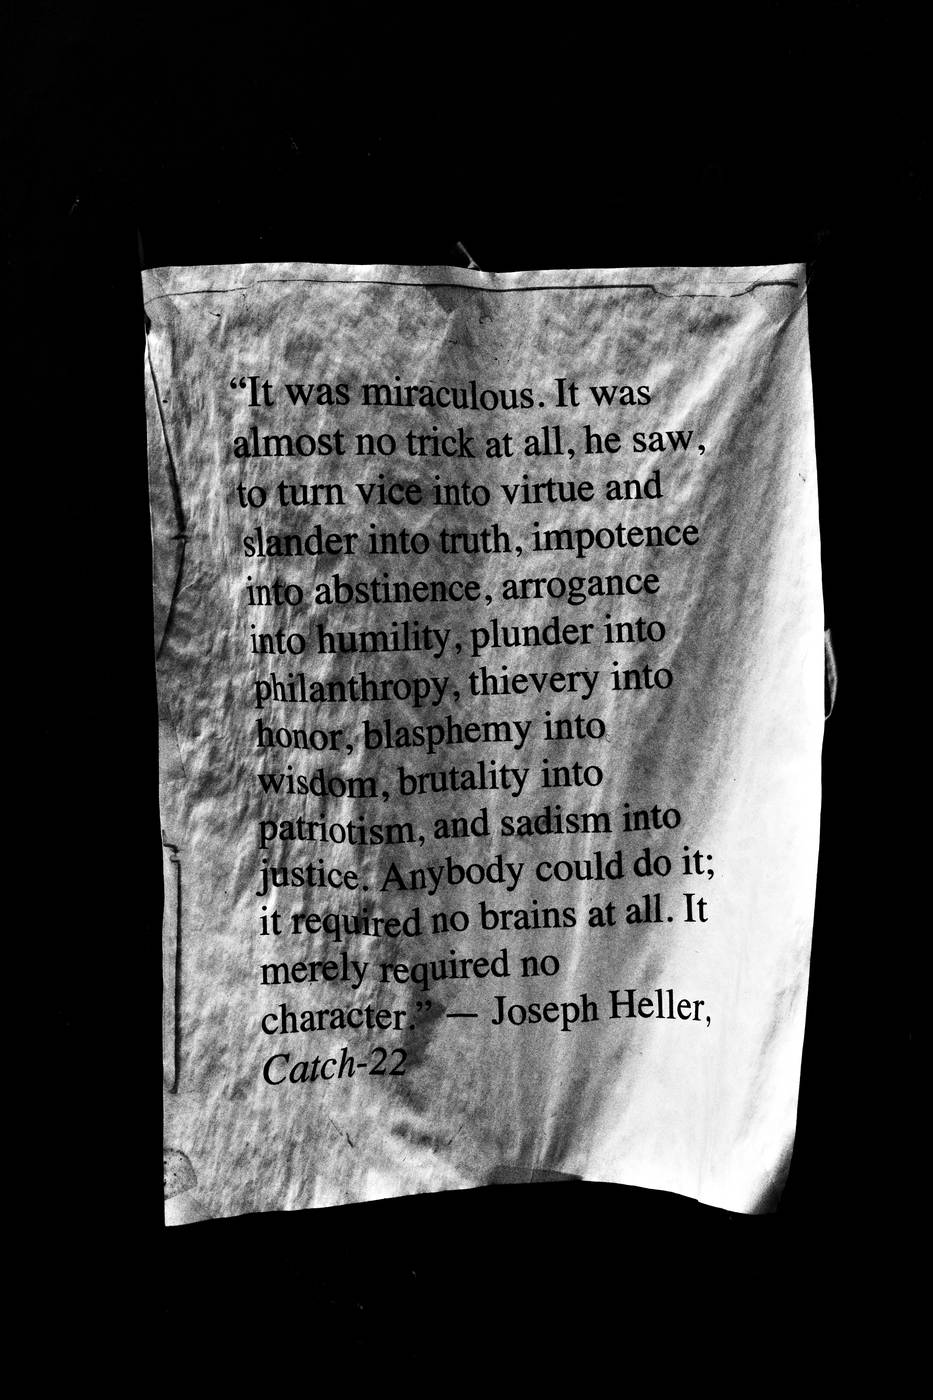 “It was miraculous. It was
almost no trick at all, he saw,
to turn vice into virtue and
slander into truth, impotence
into abstinence, arrogance
into humility, plunder into
philanthropy, thievery into
honor, blasphemy into
wisdom, brutality into
patriotism, and sadism into
justice. Anybody could do it;
it required no brains at all. It
merely required no
character.” — Joseph Heller,
Catch-22